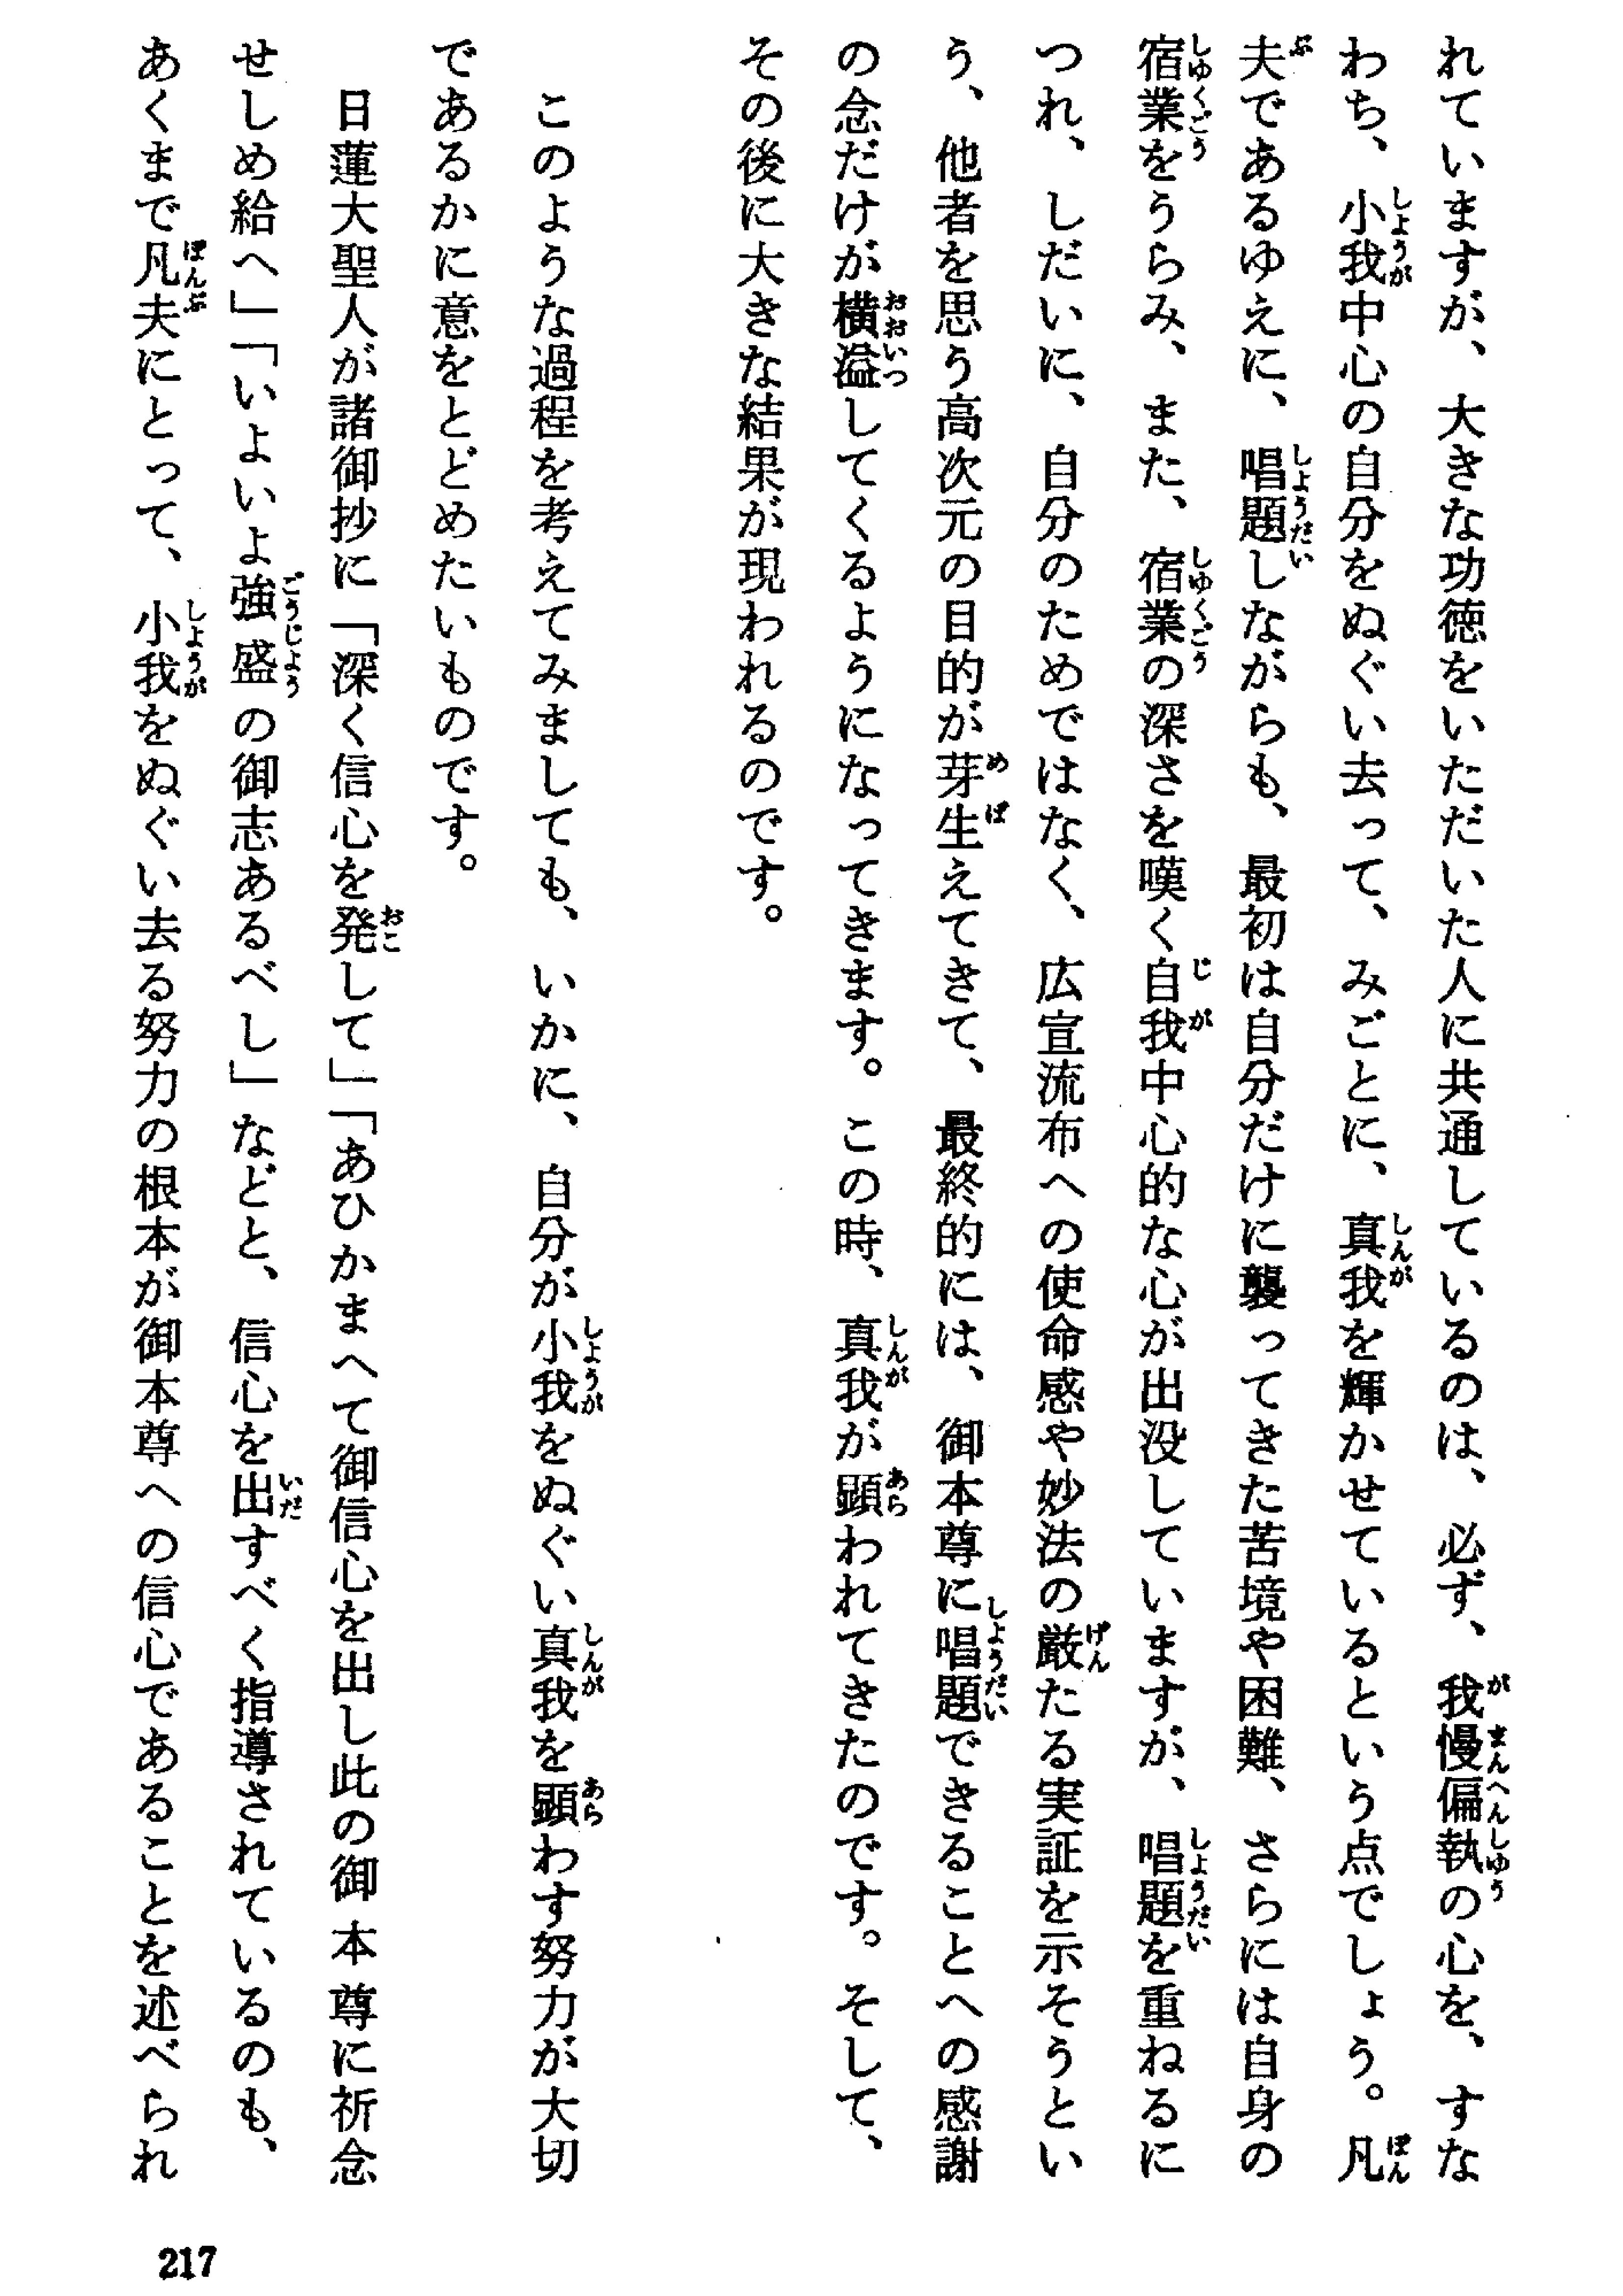 れていますが、大きな功徳をいただいた人に共通しているのは、必ず、我慢偏執の心を、すな
わち、小我中心の自分をぬぐい去って、みごとに、真我を輝かせているという点でしょう。凡
夫であるゆえに、唱題しながらも、最初は自分だけに襲ってきた苦境や困難、さらには自身の
宿業をうらみ、また、宿業の深さを嘆く自我中心的な心が出没していますが、唱題を重ねるに
つれ、しだいに、自分のためではなく、広宣流布への使命感や妙法の厳たる実証を示そうとい
う、他者を思う高次元の目的が芽生えてきて、最終的には、御本尊に唱題できることへの感謝
の念だけが横溢してくるようになってきます。この時、真我が顕われてきたのです。そして、
その後に大きな結果が現われるのです。
このような過程を考えてみましても、いかに、自分が小我をぬぐい真我を顕わす努力が大切
であるかに意をとどめたいものです。
日蓮大聖人が諸御抄に「深く信心を発して」「あひかまへて御信心を出し此の御本尊に祈念
せしめ給へ」「いよいよ強盛の御志あるべし」などと、信心を出すべく指導されているのも、
あくまで凡夫にとって、小我をぬぐい去る努力の根本が御本尊への信心であることを述べられ
217